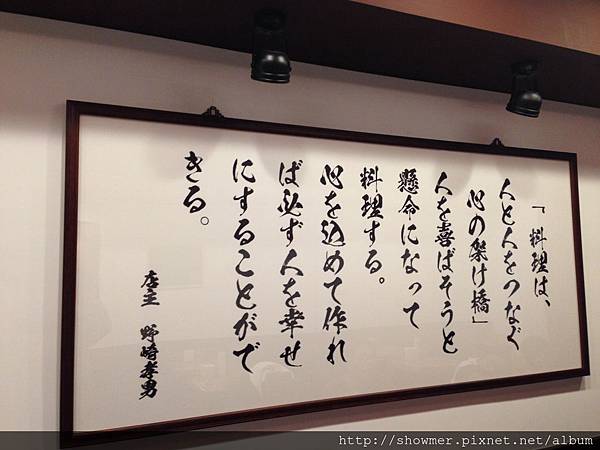 「料理は、
人と人をつなぐ
心の架け橋」
人を喜ばそうと
懸命になって
料理する。
心を込めて作れ
ば必ず人を幸せ
にすることがで
きる。
店主 野崎孝勇
http://showmer.pixnet.net/album